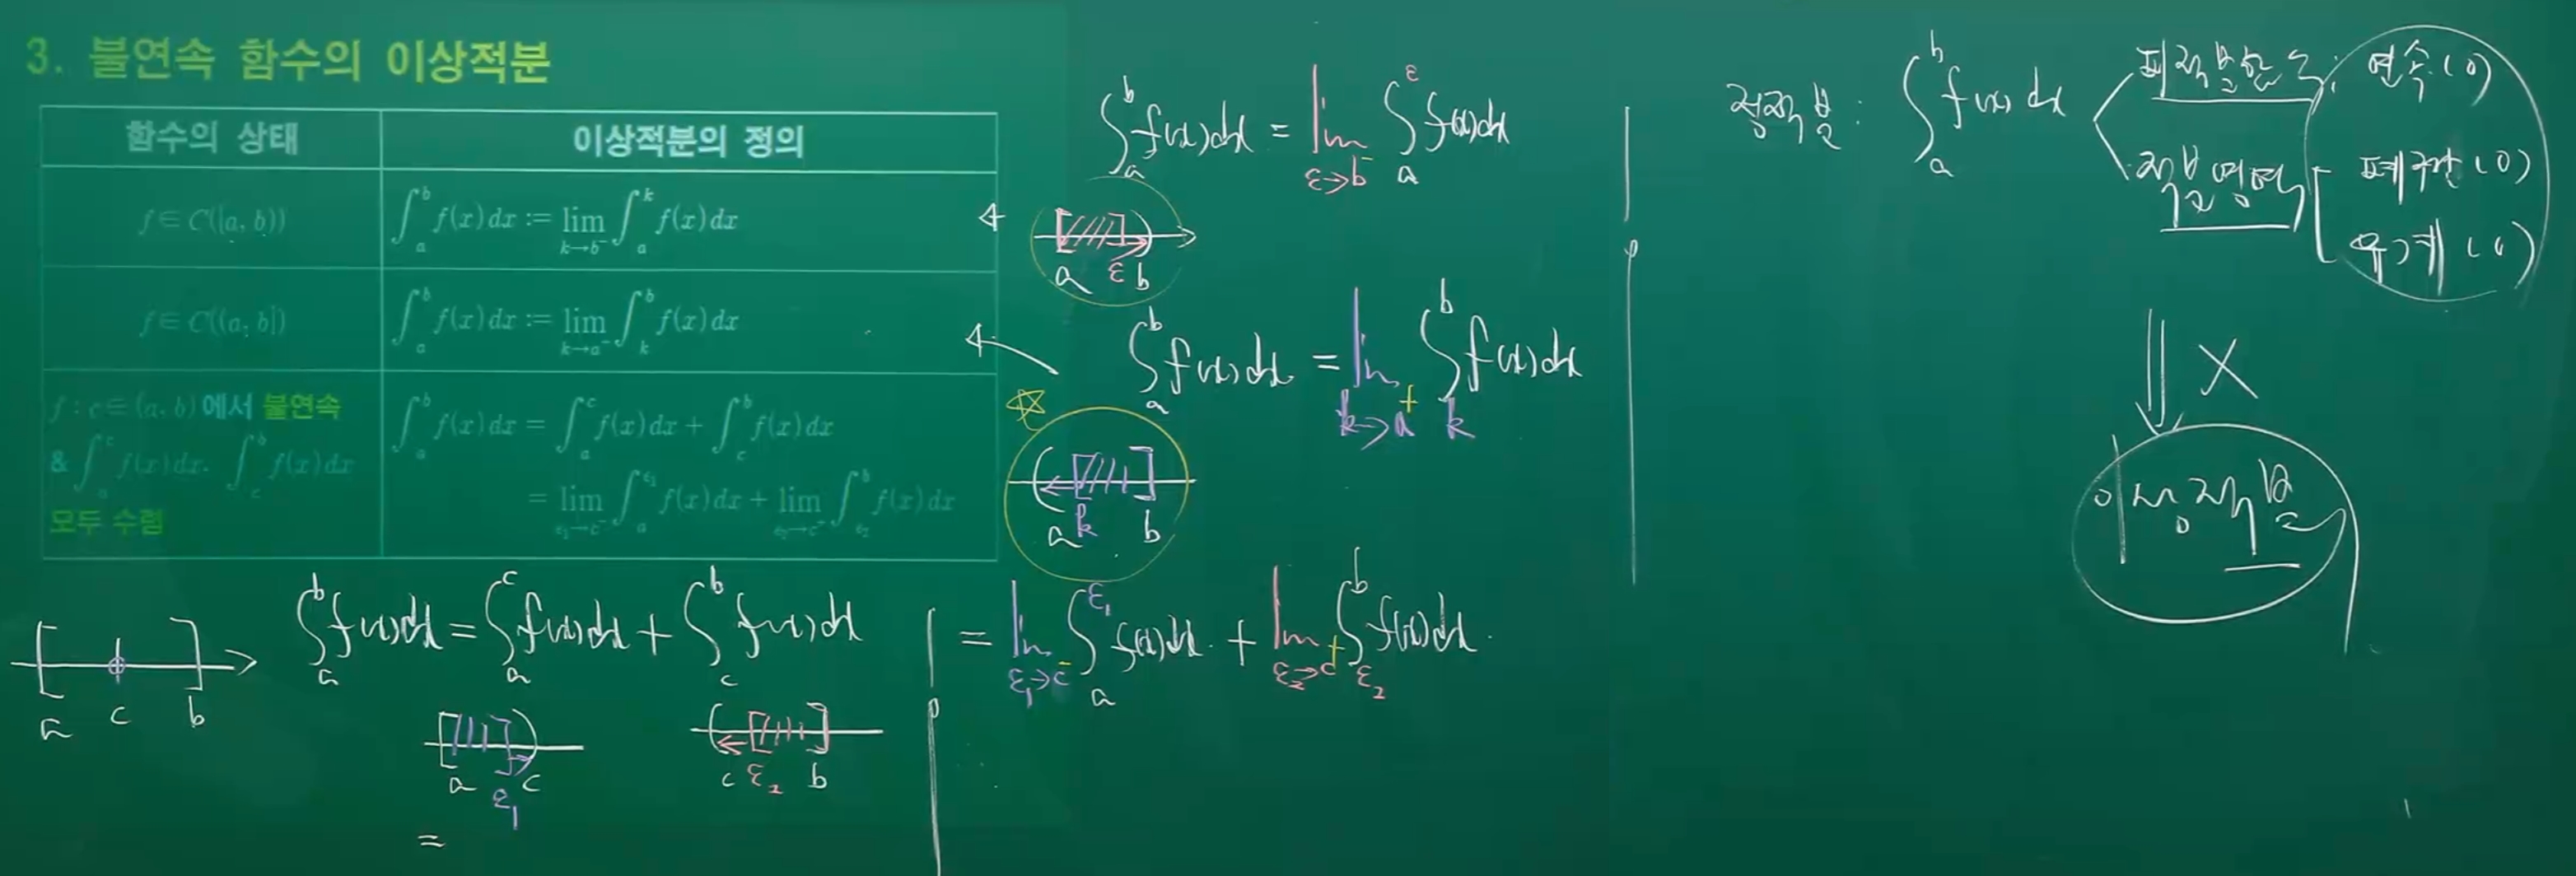 3. 불연속 함수의 이상적분
함수의 상태
이상적분의 정의
f∈C([a, b))
∫_a^b f(x)dx := lim_{k→b⁻} ∫_a^k f(x)dx
f∈C((a, b])
∫_a^b f(x)dx := lim_{k→a⁻} ∫_k^b f(x)dx
f : c∈(a, b)에서 불연속
& ∫_a^c f(x)dx, ∫_c^b f(x)dx
모두 수렴
∫_a^b f(x)dx = ∫_a^c f(x)dx + ∫_c^b f(x)dx
= lim_{ε₁→c⁻} ∫_a^{ε₁} f(x)dx + lim_{ε₂→c⁺} ∫_{ε₂}^b f(x)dx
∫_a^b f(x)dx = lim_{ε→b⁻} ∫_a^ε f(x)dx
a ε b
∫_a^b f(x)dx = lim_{k→a⁺} ∫_k^b f(x)dx
a k b
∫_a^b f(x)dx = ∫_a^c f(x)dx + ∫_c^b f(x)dx
= lim_{ε₁→c⁻} ∫_a^{ε₁} f(x)dx + lim_{ε₂→c⁺} ∫_{ε₂}^b f(x)dx
a c b
a ε₁ c
c ε₂ b
=
정적분 : ∫_a^b f(x)dx
피적분함수 : 연속(O)
적분영역
폐구간(O)
유계(O)
X
이상적분